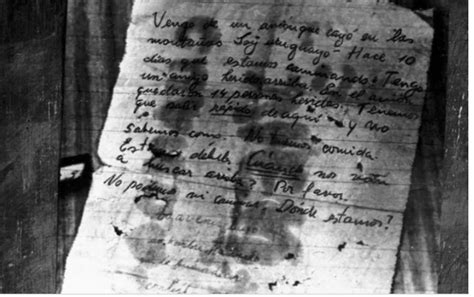 Vengo de un avion que cayó en las
montañas Soy uruguayo. Hace 10
dias que estamos caminando. Tengo
un amigo herido arriba. En el avion
quedaron 14 personas heridas. Tenemos
que salir rápido de aqui y no
sabemos como. No tenemos comida.
Estamos debiles. Cuando nos van
a buscar arriba? Por favor.
No podemos ni caminar. Dónde estamos?